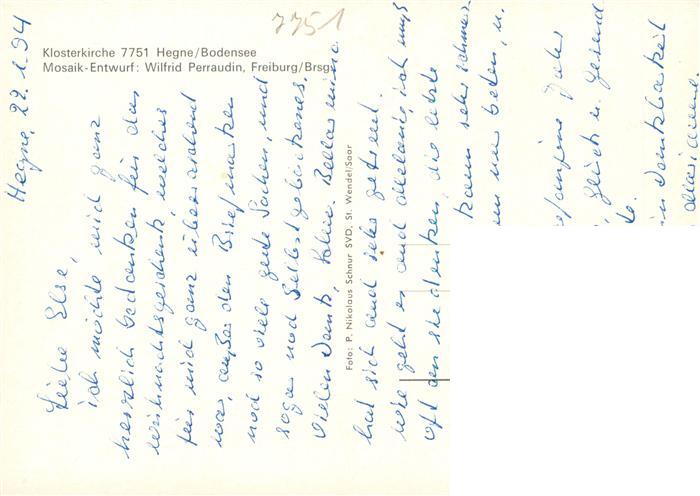 7751
Klosterkirche 7751 Hegne/Bodensee
Mosaik-Entwurf: Wilfrid Perraudin, Freiburg/Brsg.
Foto: P. Nikolaus Schnur SVD, St. Wendel/Saar
Hegne, 22.1.94
Liebe Else,
ich möchte mich ganz
herzlich bedanken für das
Weihnachtsgeschenk, welches
für mich ganz überraschend
war, außer den Briefmarken
noch so viele gute Sachen, und
sogar noch Selbstgebackenes.
Vielen Dank,
hat sich auch sehr gefreut.
Wie geht es auch ich muß
oft an sie denken, die letzte
kann sehr schmer-
nur beten, u.
Jahr
Glück u. Gesund-
in Dankbarkeit